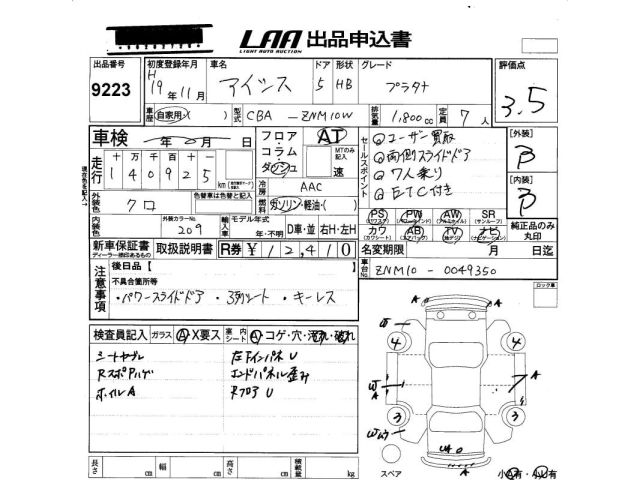 LAA 出品申込書
LIGHT AUTO AUCTION
出品番号 初度登録年月 車名 ドア 形状 グレード 評価点
9223 H19年11月 アイシス 5 HB プラタナ 3.5
車歴 自家用・( ) 型式 CBA - ZNM10W 排気量 1,800cc 定員 7人
車検 年 月 日
フロア・コラム・ダッシュ AT MTのみ記入 速
セールスポイント
ユーザー買取
両側スライドドア
7人乗り
ETC付き
[外装] B
[内装] B
走行 十万千百十一
140925 km
冷房 AAC
燃料 ガソリン・軽油・( )
外装色 クロ 色替車は色替と記入
PS PW AW SR
カワ AB TV ナビ
純正品のみ丸印
内装色 外装カラーNo. 209 輸入車 モデル年式 年・不明 D車・並 右H・左H
新車保証書 取扱説明書 R券 ¥12,410
ディーラー捺印あるもの
名変期限 月 日迄
注意事項 後日品【
不具合箇所等
・パワースライドドア ・3列シート ・キーレス
車台No. ZNM10 - 0049350
ロック車
検査員記入 ガラス A X要ス 室内シート A コゲ・穴・汚れ・破れ
シートヤブレ 左Fインパネ U
Rスポアハゲ エンドパネル歪み
ホイルA RフロアU
W
A
4 4
W
A
A
3 3
Wムウ
UA
A
長さ cm 幅 cm 高さ cm 積載量 kg
スペア 小A有・小U有